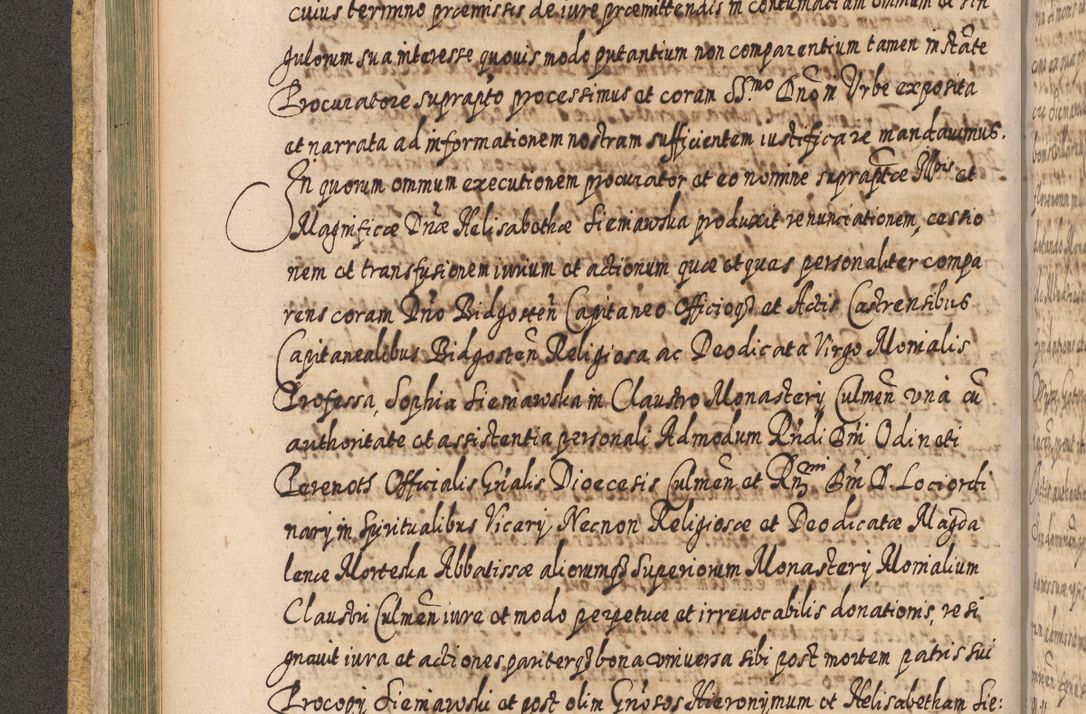 cuius termino præmissis de iure præmittendis in contumaciam omnium et sin
gulorum sua interesse quovis modo putantium non comparentium tamen instāte
Procuratore suprapto processimus et coram SS.mo Dnō in Urbe exposita
et narrata ad informationem nostram sufficientem iustificare mandavimus.
In quorum omnium executionem procurator et eo nomine supraptæ Illris et
Magnificæ Dnæ Helisabethæ Siemawska produxit renunciationem, cessio
nem et transfusionem iurium et actionum quæ et quas personaliter compa
rens coram Dnō Bidgosteñ Capitaneo Officioqȝ et Actis Castrensibus
Capitanealibus Bidgosteñ Religiosa ac Deodicata Virgo Monialis
Professa, Sophia Siemawska in Claustro Monasterij Culmeñ una cū
authoritate et assistentia personali Admodum Rndi Dni Odineti
Perenots Officialis Gnalis Dioecesis Culmeñ et Rñ Dni D. Loci ordi
narij in Spiritualibus Vicarij, Necnon Religiosæ et Deodicatæ Magda
lenæ Morteska Abbatissæ aliorumqȝ Superiorum Monasterij Monialium
Claustri Culmeñ iure et modo perpetuæ et irrevocabilis donationis, resi
gnavit iura et actiones pariterqȝ bona universa sibi post mortem patris sui
Procopij Siemawski et post olim Gnosos Hieronymum et Helisabetham Sie: